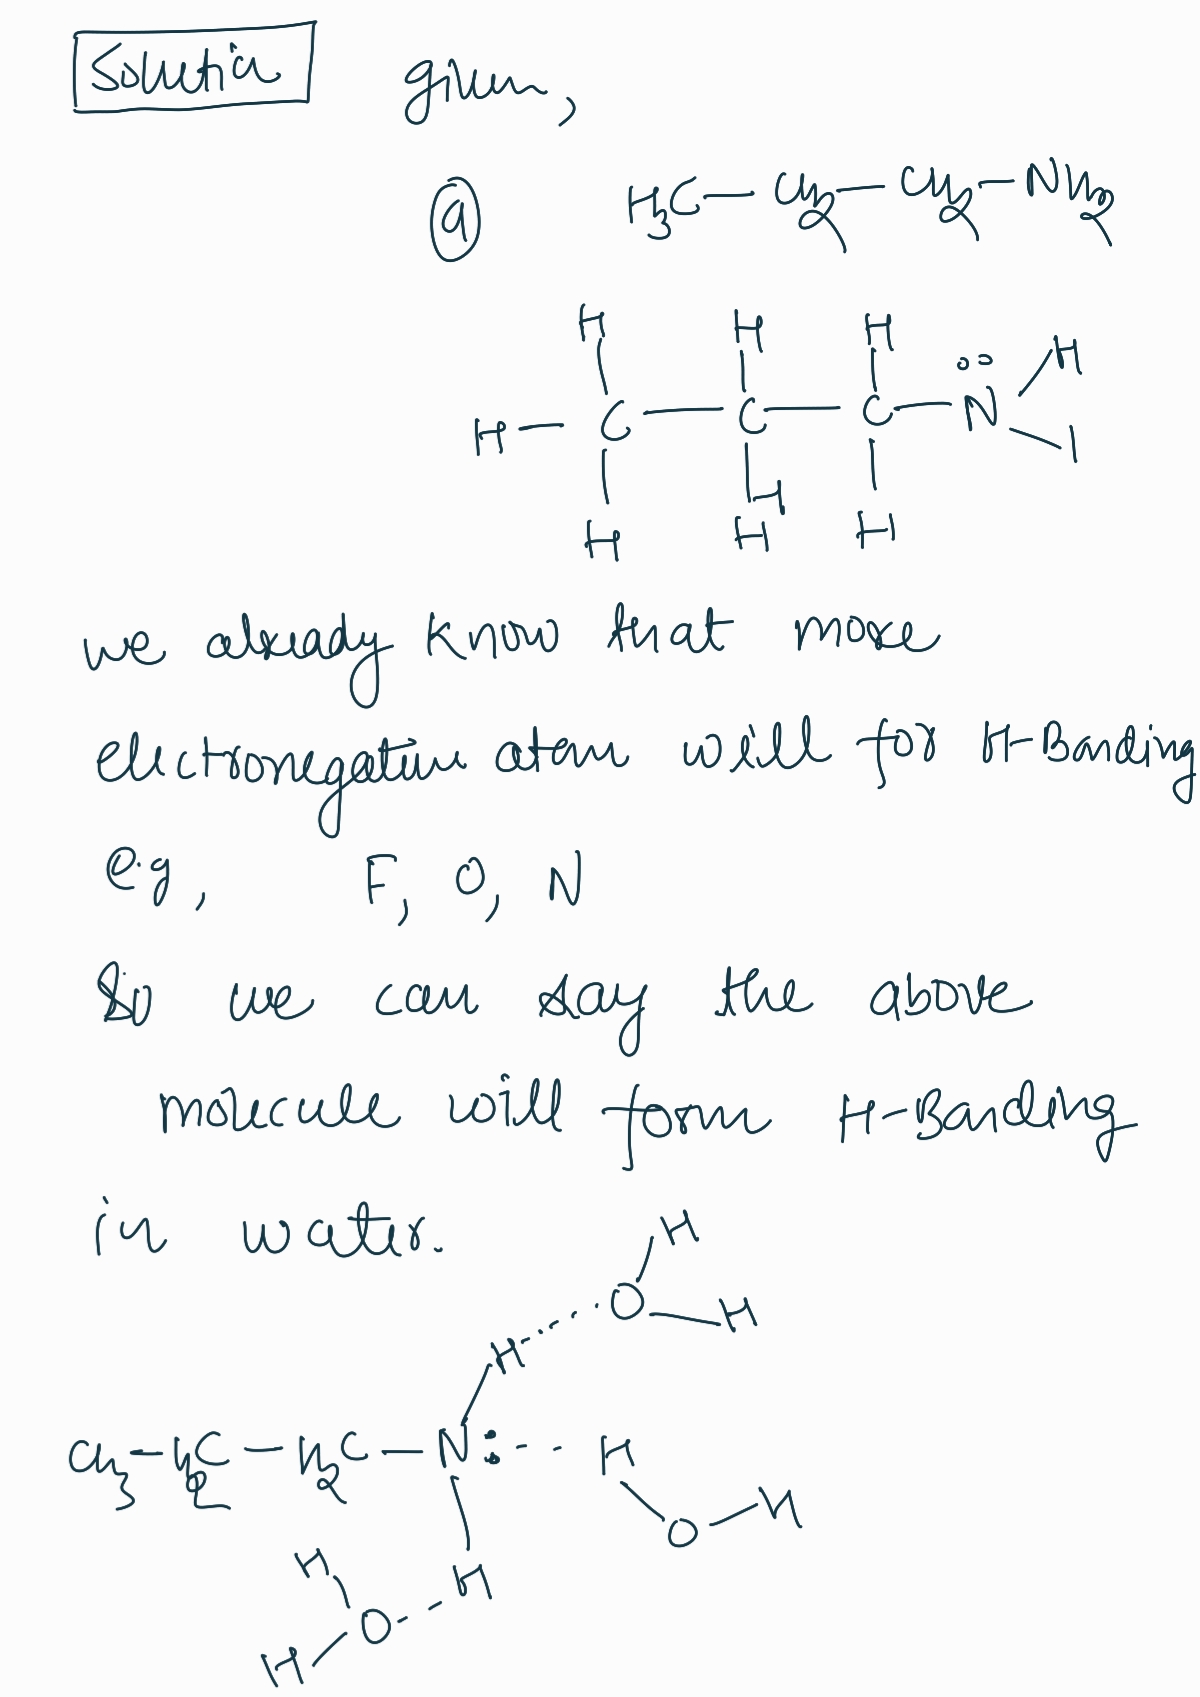 Solution given,
(a) H₃C — CH₂ — CH₂ — NH₂
H H H
H — C — C — C — N H
H H H
we already know that more
electronegative atom will for H-Bonding
e.g, F, O, N
So we can say the above
molecule will form H-Bonding
in water.
H
O — H
H
CH₃ — H₂C — H₂C — N: H
O — H
H H
O
H